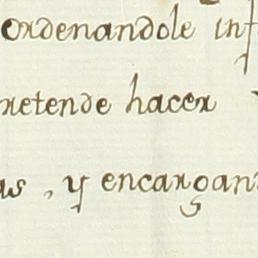 ordenandole inf
retende hacer
as, y encargan